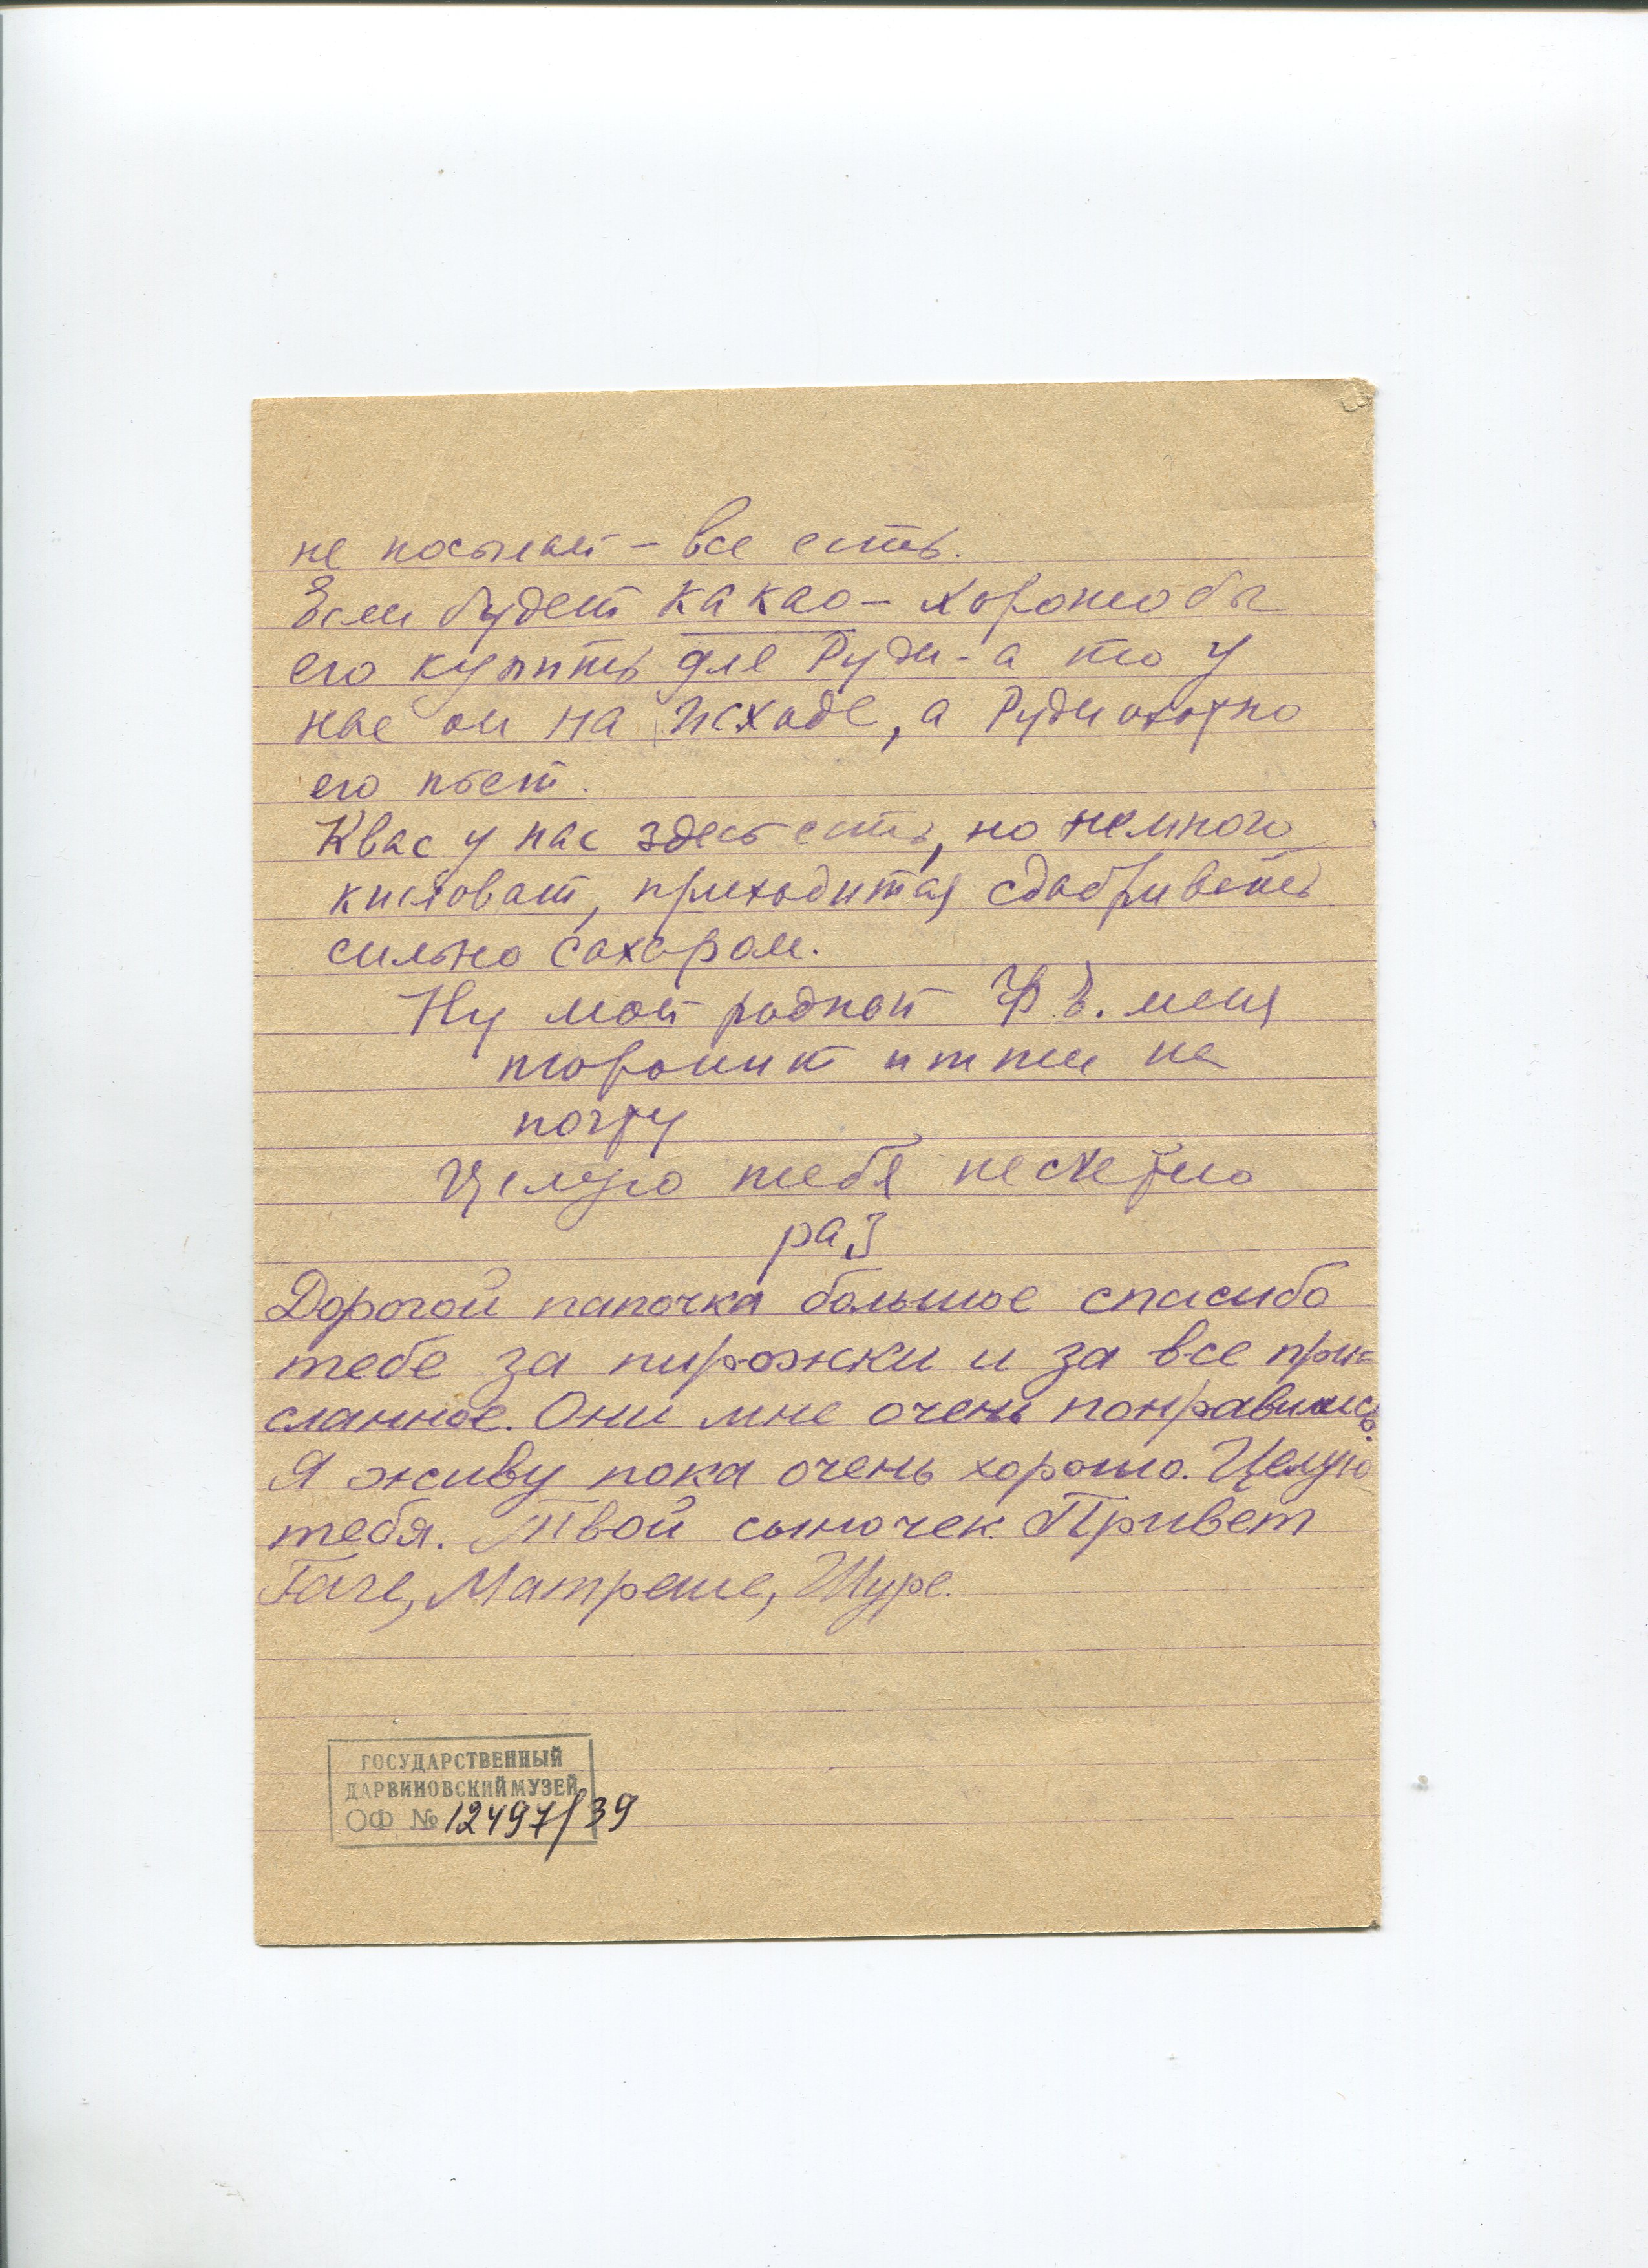 не посылай – все есть.
Если будет какао – хорошо бы
его купить для Руди – а то у
нас он на исходе, а Руди охотно
его пьет.
Квас у нас здесь есть, но немного
кисловат, приходится сдабривать
сильно сахаром.
Ну мой родной Ф. В. меня
торопит итти на
почту
Целую тебя несчетно
раз
Дорогой папочка большое спасибо
тебе за пирожки и за все при=
сланное. Они мне очень понравились.
Я живу пока очень хорошо. Целую
тебя. Твой сыночек. Привет
Гаче, Матреше, Шуре.
ГОСУДАРСТВЕННЫЙ
ДАРВИНОВСКИЙ МУЗЕЙ
ОФ № 12497/39